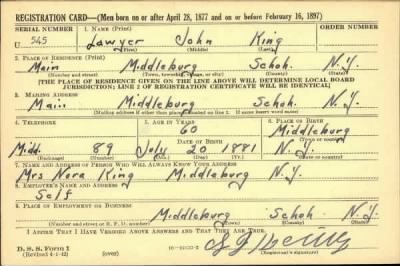 REGISTRATION CARD—(Men born on or after April 28, 1877 and on or before February 16, 1897)
SERIAL NUMBER 1. NAME (Print) ORDER NUMBER
U 545 Lawyer John King
(First) (Middle) (Last)
2. PLACE OF RESIDENCE (Print)
Main Middleburg Schoh. N.Y.
(Number and street) (Town, township, village, or city) (County) (State)
[THE PLACE OF RESIDENCE GIVEN ON THE LINE ABOVE WILL DETERMINE LOCAL BOARD
JURISDICTION; LINE 2 OF REGISTRATION CERTIFICATE WILL BE IDENTICAL]
3. MAILING ADDRESS
Main Middleburg Schoh. N.Y.
[Mailing address if other than place indicated on line 2. If same insert word same]
4. TELEPHONE 5. AGE IN YEARS 6. PLACE OF BIRTH
60 Middleburg
DATE OF BIRTH (Town or county)
Midd. 89 July 20 1881 N.Y.
(Exchange) (Number) (Mo.) (Day) (Yr.) (State or country)
7. NAME AND ADDRESS OF PERSON WHO WILL ALWAYS KNOW YOUR ADDRESS
Mrs Nora King Middleburg N.Y.
8. EMPLOYER'S NAME AND ADDRESS
Self
9. PLACE OF EMPLOYMENT OR BUSINESS
Middleburg Schoh N.Y.
(Number and street or R. F. D. number) (Town) (County) (State)
I AFFIRM THAT I HAVE VERIFIED ABOVE ANSWERS AND THAT THEY ARE TRUE.
D. S. S. Form 1
(Revised 4-1-42) (over) (Registrant's signature)